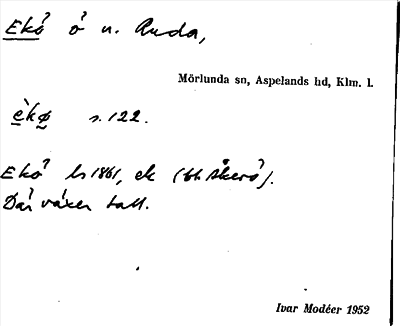 Ekö ö n. Ruda,
Mörlunda sn, Aspelands hd, Klm. l.
èkø s. 122.
Ekö ls 1861, ek (bl. Åkerö).
Där växer tall.
Ivar Modéer 1952